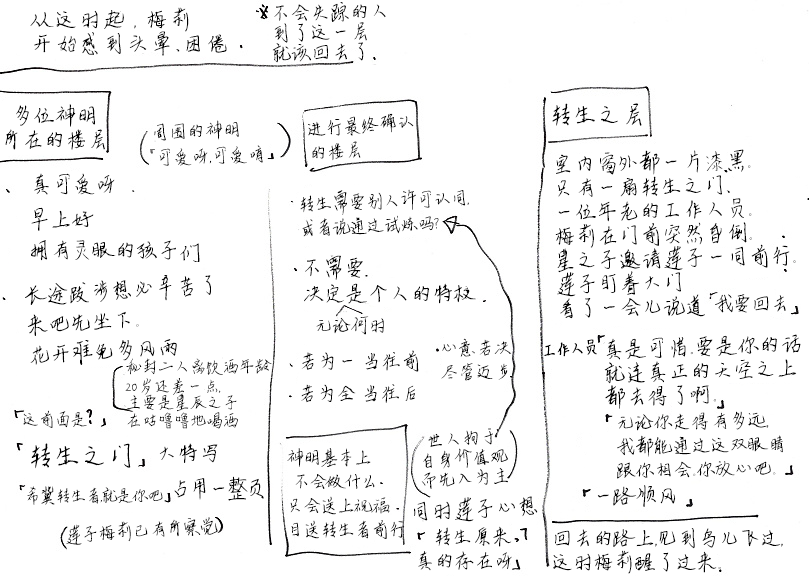 从这时起，梅莉
开始感到头晕、困倦．
※不会失踪的人
到了这一层
就该回去了．
多位神明
所在的楼层
（周围的神明
「可爱呀，可爱唷」）
、真可爱呀．
早上好
拥有灵眼的孩子们
、长途跋涉想必辛苦了
来吧先坐下．
花开难免多风雨
（秘封二人离饮酒年龄
20岁还差一点，
主要是星辰之子
在咕噜噜地喝酒
「这前面是？」
「转生之门」大特写
「希冀转生者就是你吧」占用一整页
（莲子梅莉已有所察觉）
进行最终确认
的楼层
・转生需要别人许可认同，
或者说通过试炼吗？
・不需要．
决定是个人的特权．
无论何时
・若为一 当往前
・若为全 当往后
・心意若决
尽管迈步
神明基本上
不会做什么．
只会送上祝福．
目送转生者前行
（世人拘于
自身价值观
而先入为主）
同时莲子心想
「转生原来，
真的存在呀」
转生之层
室内窗外都一片漆黑．
只有一扇转生之门、
一位年老的工作人员．
梅莉在门前突然昏倒．
星之子邀请莲子一同前行．
莲子盯着大门
看了一会儿说道「我要回去」
工作人员「真是可惜．要是你的话
就连真正的天空之上
都去得了啊．」
「无论你走得有多远
我都能通过这双眼睛
跟你相会．你放心吧．」
「一路顺风」
回去的路上，见到鸟儿飞过，
这时梅莉醒了过来．